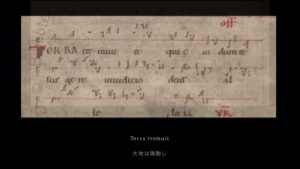 off
ERRA tre muit et qui e uit dum re
sur ge ret iniudicio deus al
le lu ia VR
Terra tremuit
大地は鳴動し